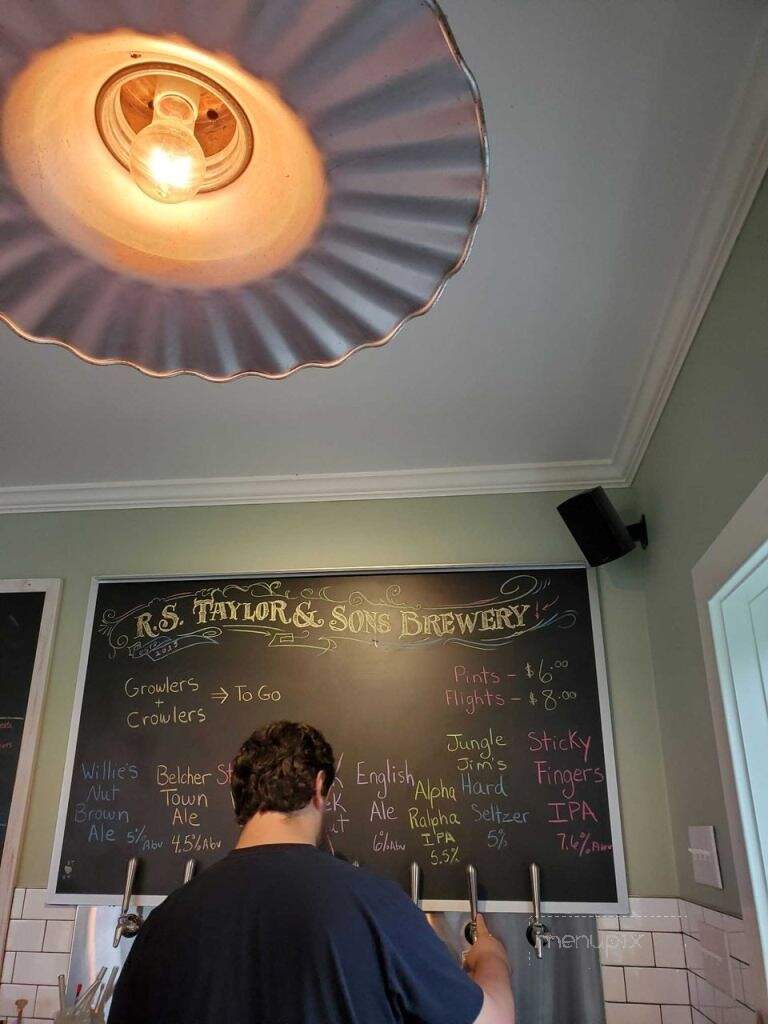 R.S. TAYLOR & SONS BREWERY
2015
Growlers
+
Crowlers
⇒ To Go
Pints - $6.00
Flights - $8.00
Willie's
Nut
Brown
Ale 5% Abv
Belcher
Town
Ale
4.5% Abv
English
Ale
6% Abv
Alpha
Ralpha
IPA
5.5%
Jungle
Jim's
Hard
Seltzer
5%
Sticky
Fingers
IPA
7.6% Abv
menupix